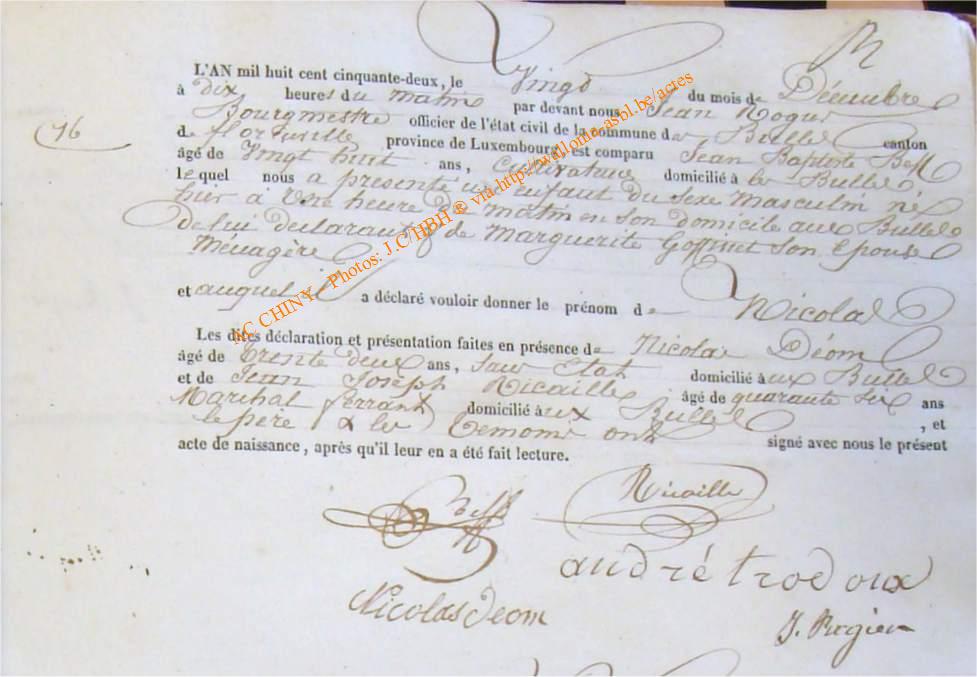 L'AN mil huit cent cinquante-deux, le Vingt du mois de Décembre
à Dix heures du matin par devant nous Jean Rogier
Bourgmestre officier de l'état civil de la commune de Bulles canton
de florenville province de Luxembourg, est comparu Jean Baptiste
âgé de Vingt huit ans, cultivateur domicilié à les Bulles
le quel nous a présenté un enfant du sexe masculin né
hier à Une heure du matin en son domicile aux Bulles
De lui declarant & de Marguerite Goffinet son Epouse
Menagère
et auquel il a déclaré vouloir donner le prénom de Nicolas
Les dites déclaration et présentation faites en présence de Nicolas Déom
âgé de trente deux ans, Sans Etat domicilié aux Bulles
et de Jean Joseph Nicaille âgé de quarante six ans
Marchal ferrant domicilié aux Bulles , et
le père & les temoins ont signé avec nous le présent
acte de naissance, après qu'il leur en a été fait lecture.
76
Nicaille
andré trodoux
Nicolas deom
J. Rogier
AC CHINY - Photos: J.C/HBH ® via http://wallonia-asbl.be/actes